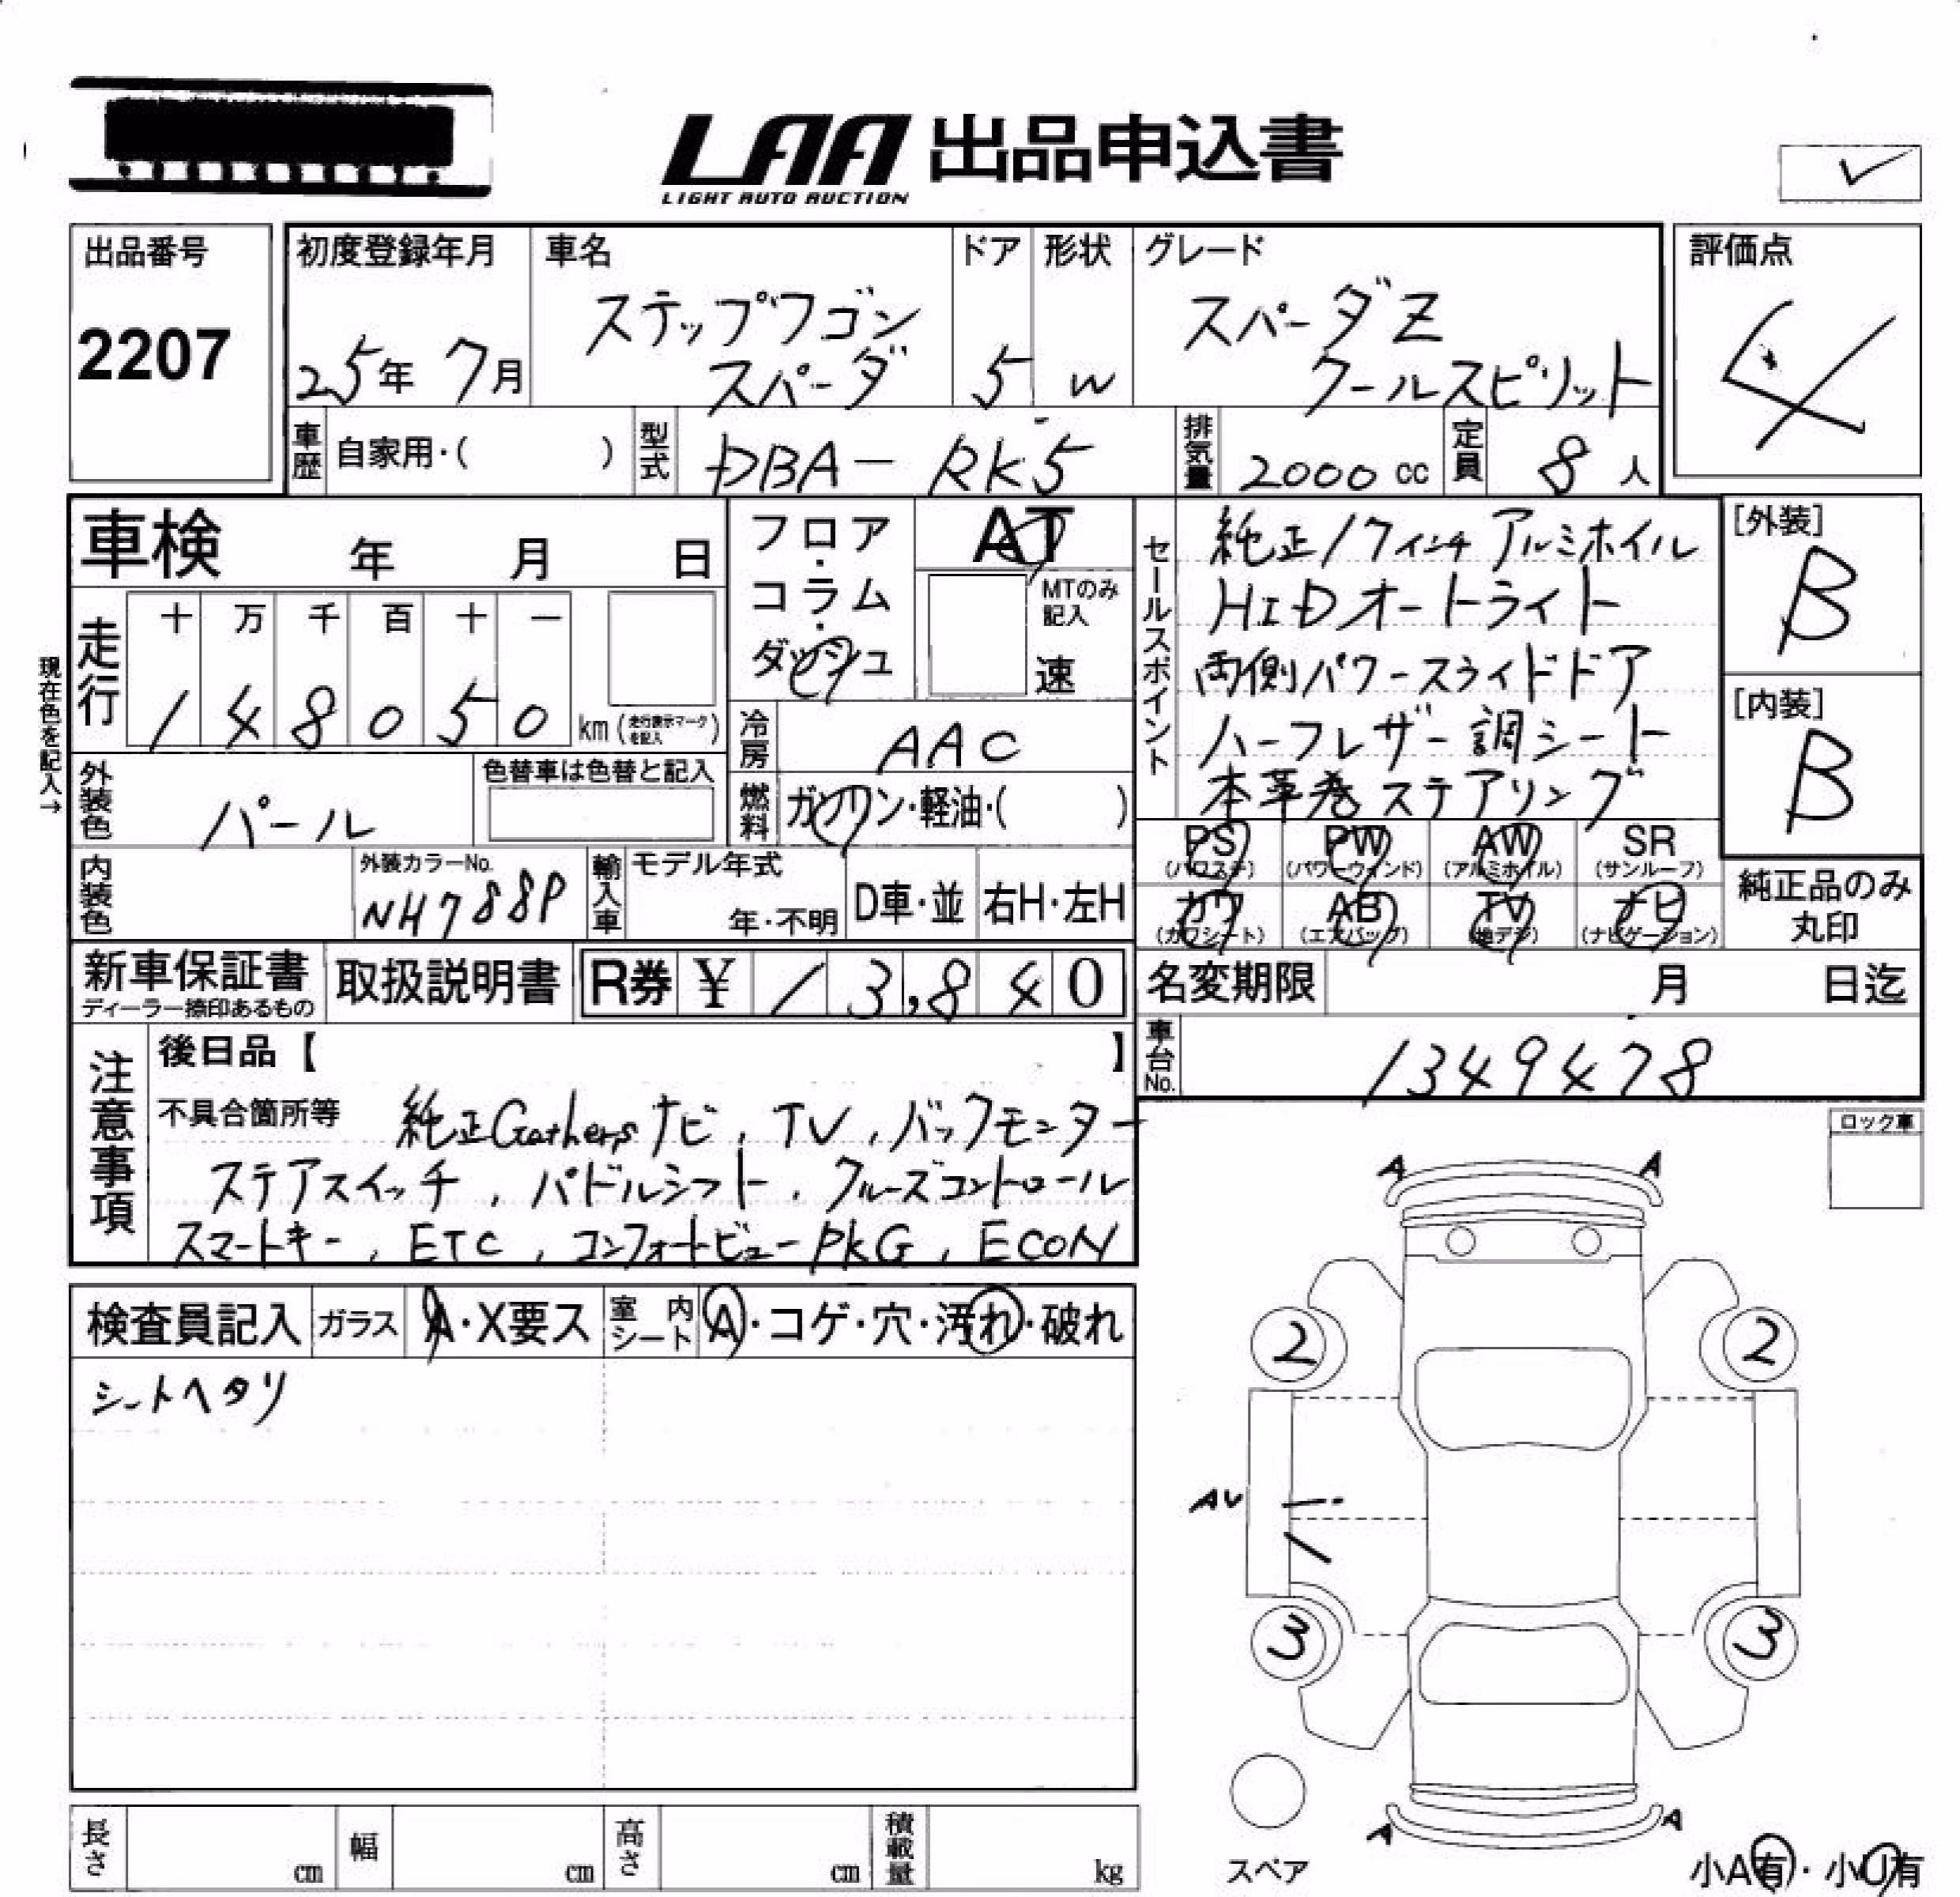 LAA 出品申込書
LIGHT AUTO AUCTION
出品番号
2207
初度登録年月
25年 7月
車名
ステップワゴン
スパーダ
ドア
5
形状
W
グレード
スパーダZ
クールスピリット
評価点
4
車歴 自家用・( )
型式 DBA-RK5
排気量 2000 cc
定員 8 人
車検 年 月 日
フロア・コラム・ダッシュ
AT
MTのみ記入
速
セールスポイント
純正17インチアルミホイル
HIDオートライト
両側パワースライドドア
ハーフレザー調シート
本革巻ステアリング
[外装]
B
[内装]
B
現在色を記入→
走行
十 万 千 百 十 一
1 4 8 0 5 0 km (走行表示マークを記入)
冷房 AAC
外装色 パール
色替車は色替と記入
燃料 ガソリン・軽油・( )
PS (パワステ)
PW (パワーウィンド)
AW (アルミホイル)
SR (サンルーフ)
カワ (カワシート)
AB (エアバッグ)
TV (地デジ)
ナビ (ナビゲーション)
純正品のみ
丸印
内装色
外装カラーNo.
NH788P
輸入車 モデル年式
年・不明
D車・並
右H・左H
新車保証書
ディーラー捺印あるもの
取扱説明書
R券 ¥ 13,840
名変期限 月 日迄
車台No. 1349478
注意事項
後日品【 】
不具合箇所等 純正Gathersナビ, TV, バックモニター
ステアスイッチ, パドルシフト, クルーズコントロール
スマートキー, ETC, コンフォートビューPKG, ECON
ロック車
検査員記入 ガラス A・X要ス 室内シート A・コゲ・穴・汚れ・破れ
シートヘタリ
A A
2 2
AU
3 3
A A
スペア
小A有・小U有
長さ cm 幅 cm 高さ cm 積載量 kg